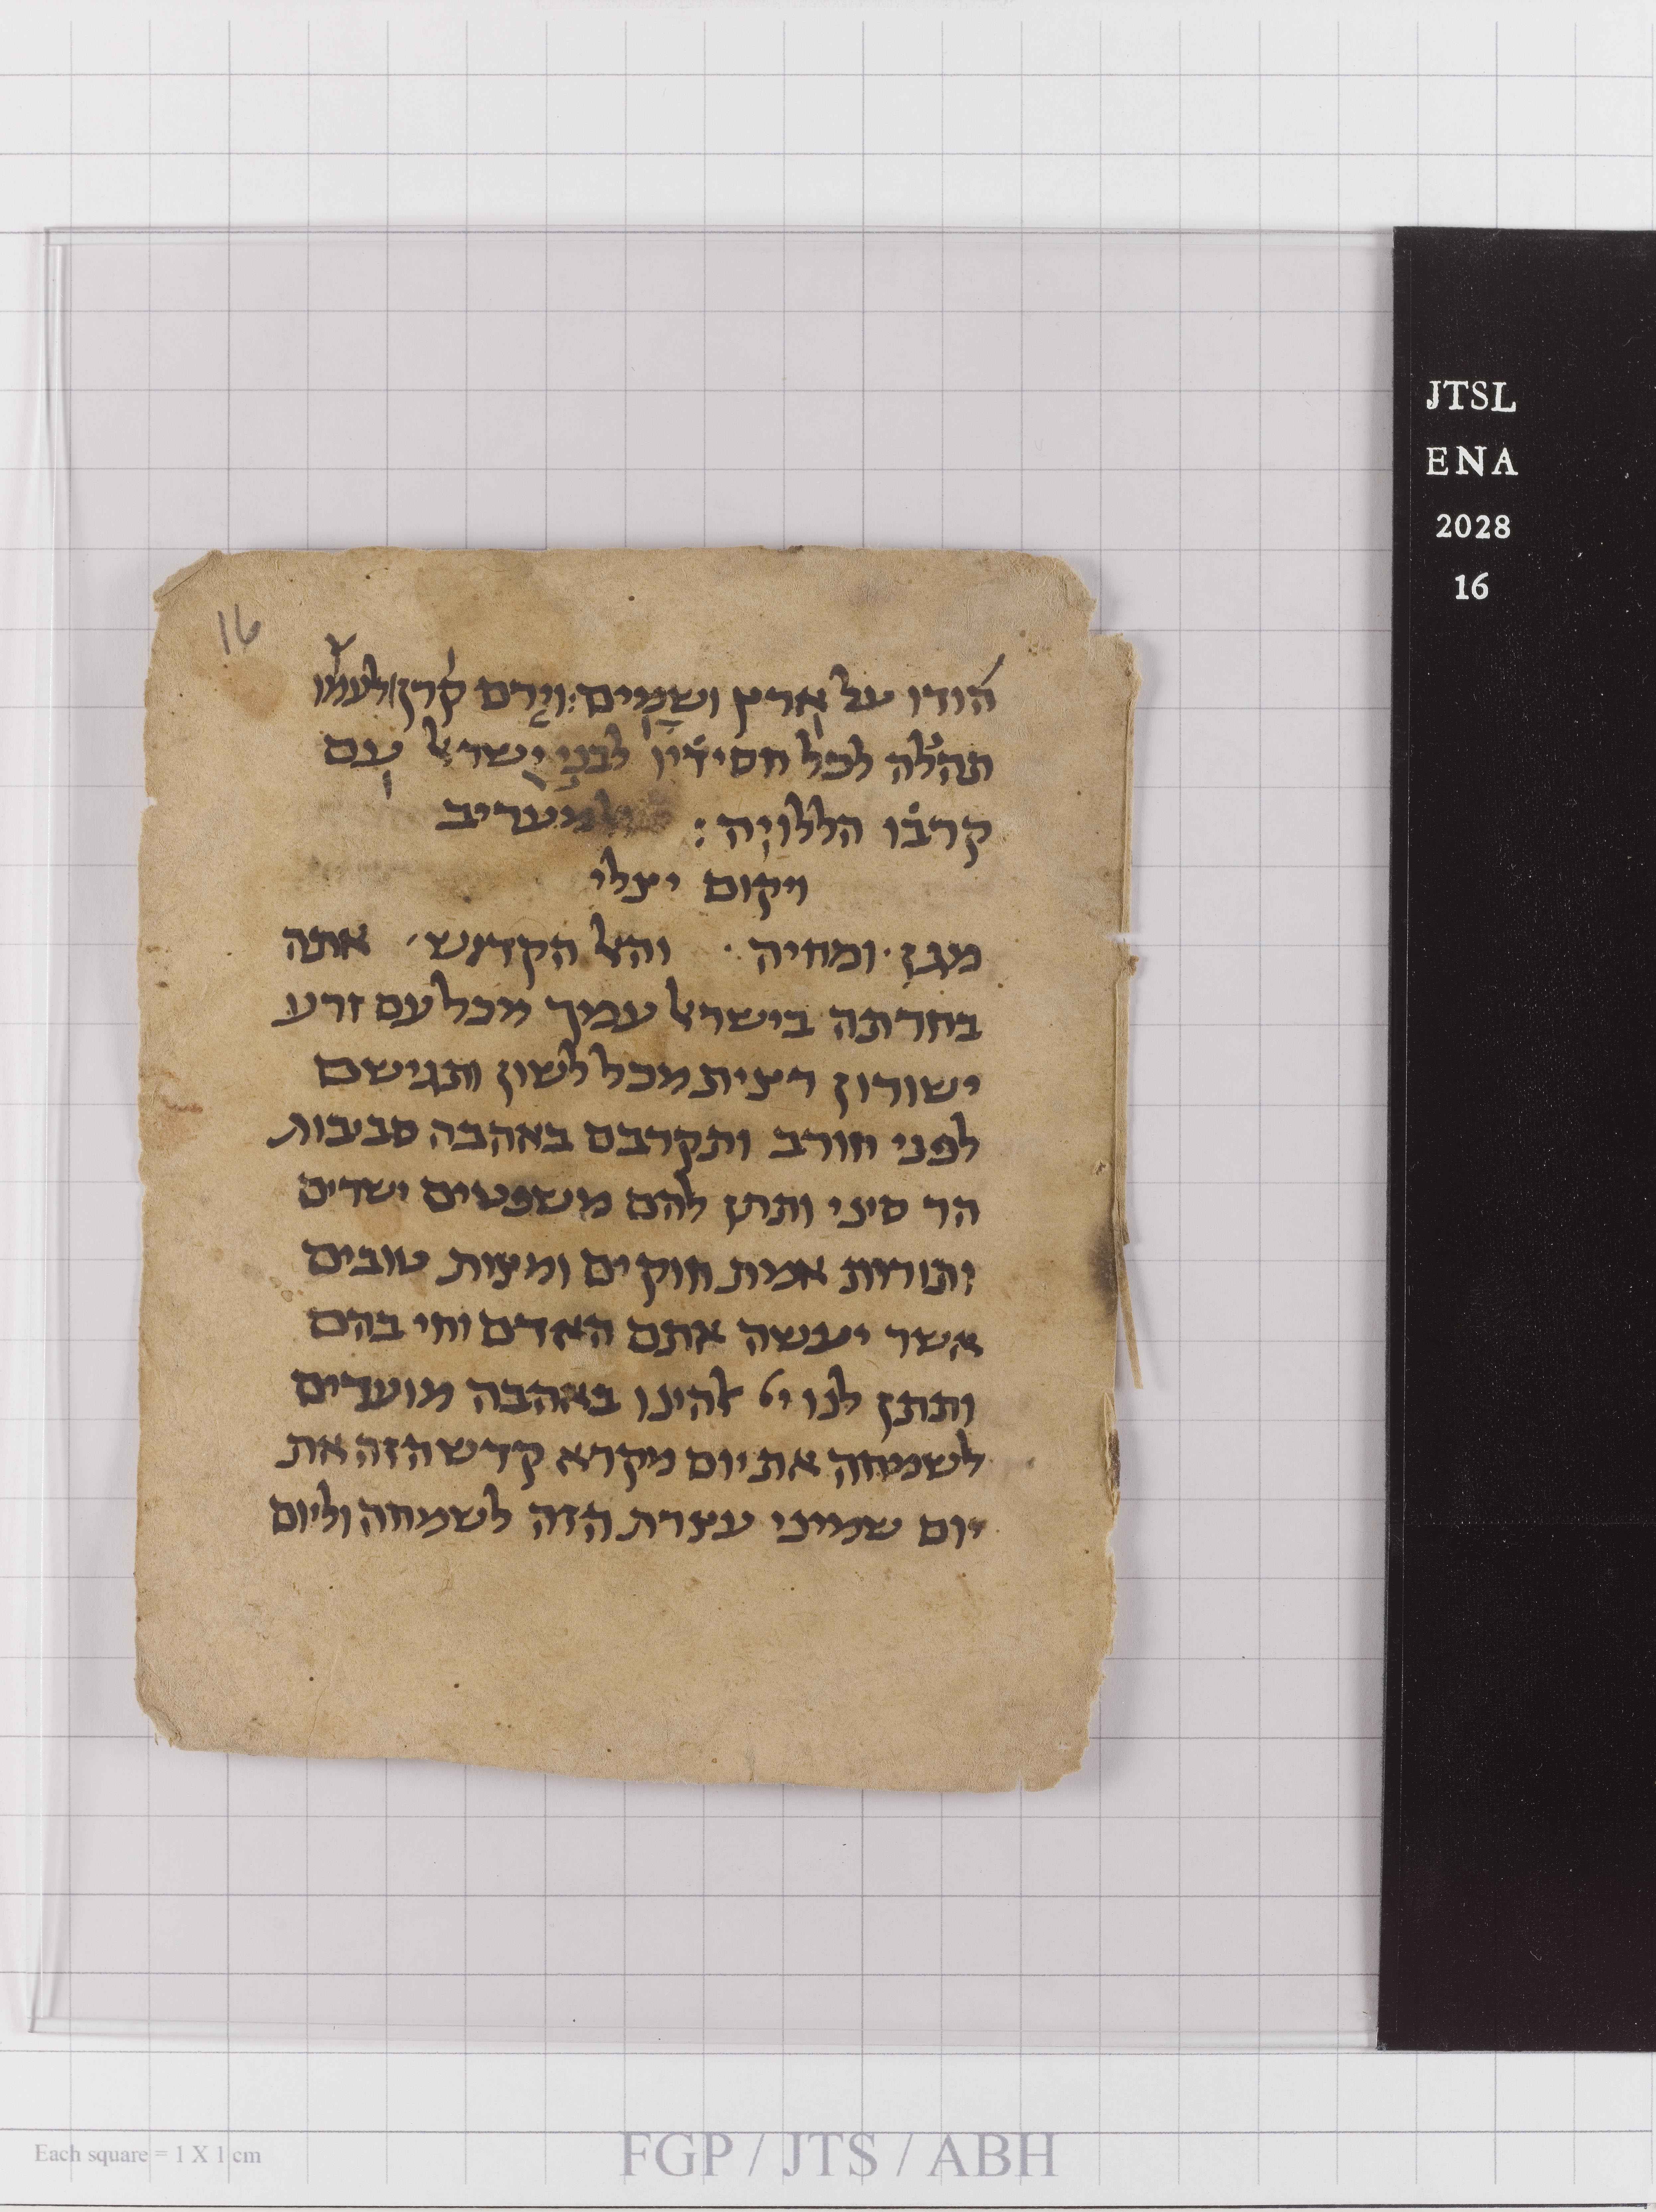 16
הודו על ארץ ושמים: וירם קרן לעמו
תהלה לכל חסידיו לבני ישראל עם
קרבו הללויה: ולמעריב
ויקום יצלי
מגן · ומחיה · והאל הקדוש · אתה
בחרתה בישראל עמך מכל עם זרע
ישורון רצית מכל לשון ותגישם
לפני חורב ותקרבם באהבה סביבות
הר סיני ותתן להם משפטים ישרים
ותורות אמת חוקים ומצות טובים
אשר יעשה אתם האדם וחי בהם
ותתן לנו יי אלהינו באהבה מועדים
לשמחה את יום מקרא קדש הזה את
יום שמיני עצרת הזה לשמחה וליום
JTSL
ENA
2028
16
Each square = 1 X 1 cm
FGP / JTS / ABH